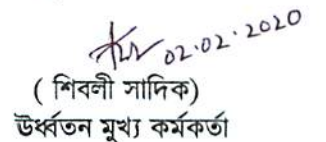 02.02.2020
( শিবলী সাদিক)
উর্ধ্বতন মুখ্য কর্মকর্তা